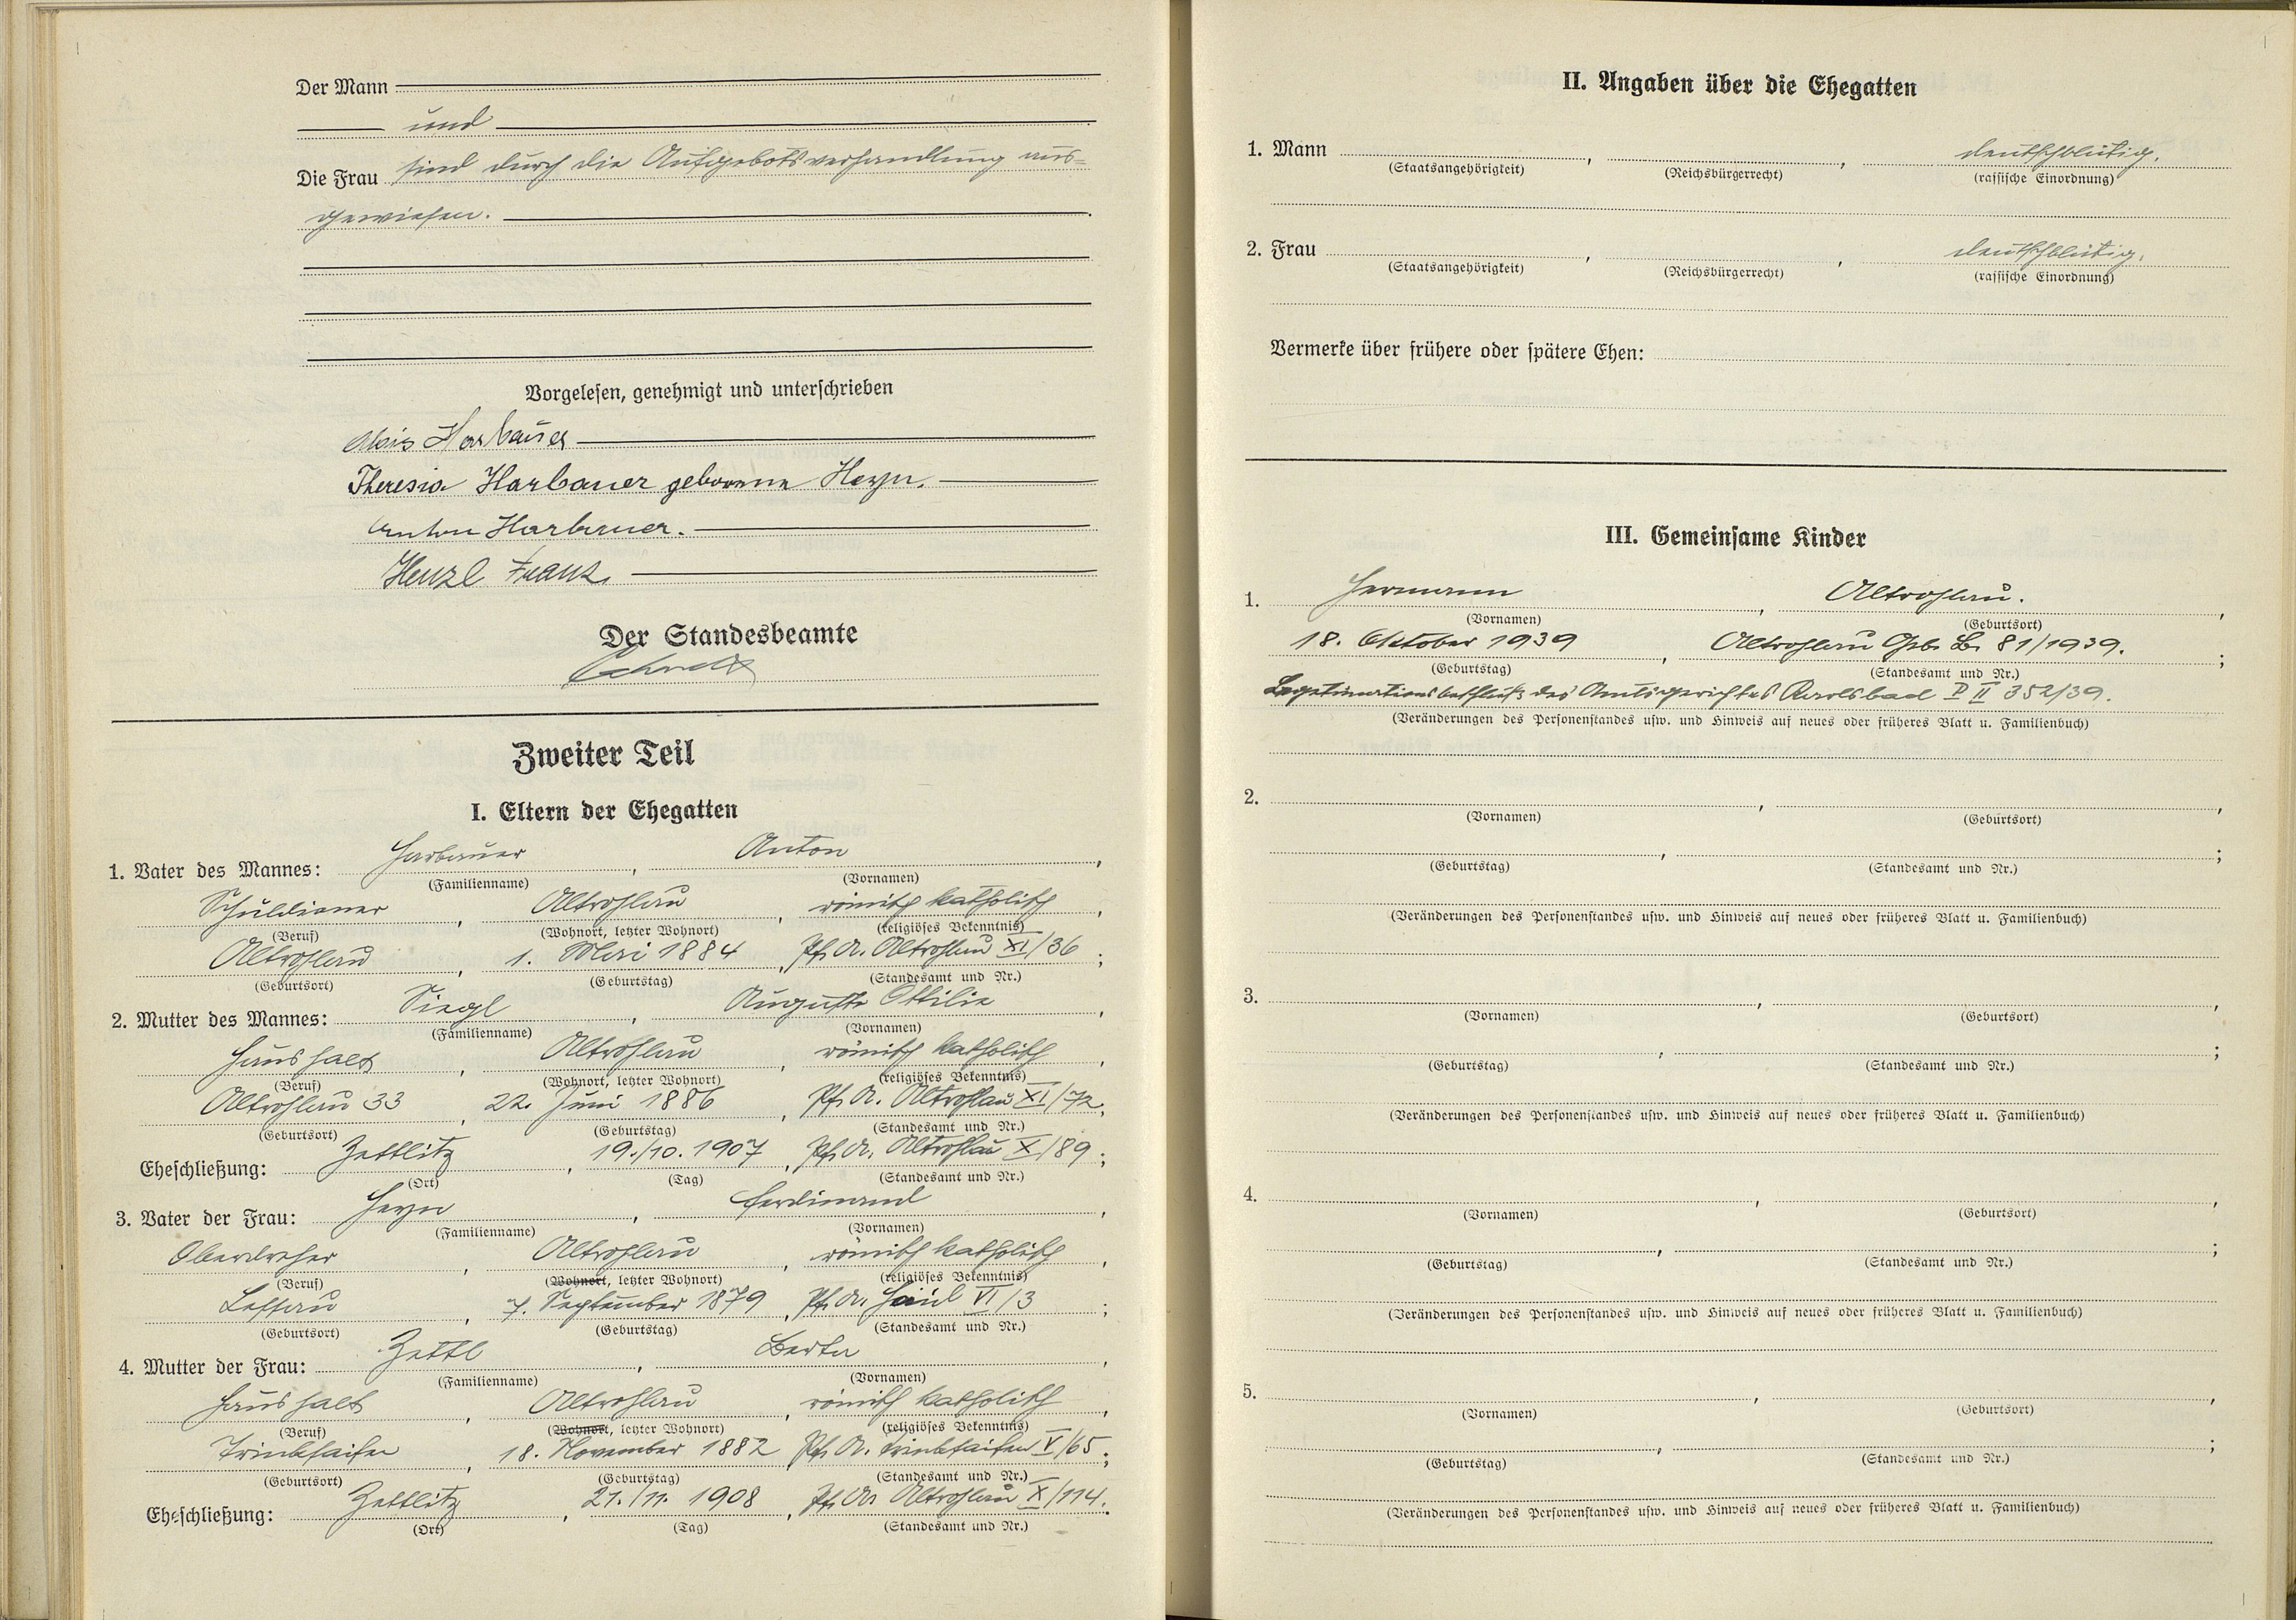 Der Mann
und
Die Frau sind durch die Aufgebotsverhandlung aus=
gewiesen.
Vorgelesen, genehmigt und unterschrieben
Alois Harbauer
Theresia Harbauer geborene Heyn.
Anton Harbauer.
Henzl Franz.
Der Standesbeamte
Zweiter Teil
I. Eltern der Ehegatten
1. Vater des Mannes: Harbauer, Anton,
(Familienname) (Vornamen)
Schuldiener, Altrohlau, römisch katholisch,
(Beruf) (Wohnort, letzter Wohnort) (religiöses Bekenntnis)
Altrohlau, 1. Mai 1884, Pf. A. Altrohlau XI/36;
(Geburtsort) (Geburtstag) (Standesamt und Nr.)
2. Mutter des Mannes: Siegl, Auguste Ottilie,
(Familienname) (Vornamen)
Haushalt, Altrohlau, römisch katholisch,
(Beruf) (Wohnort, letzter Wohnort) (religiöses Bekenntnis)
Altrohlau 33, 22. Juni 1886, Pf. A. Altrohlau XI/72;
(Geburtsort) (Geburtstag) (Standesamt und Nr.)
Eheschließung: Zettlitz, 19./10. 1907, Pf. A. Altrohlau X/89;
(Ort) (Tag) (Standesamt und Nr.)
3. Vater der Frau: Heyn, Ferdinand,
(Familienname) (Vornamen)
Oberdreher, Altrohlau, römisch katholisch,
(Beruf) (Wohnort, letzter Wohnort) (religiöses Bekenntnis)
Lessau, 7. September 1879, Pf. A. VI/3;
(Geburtsort) (Geburtstag) (Standesamt und Nr.)
4. Mutter der Frau: Zettl, Berta,
(Familienname) (Vornamen)
Haushalt, Altrohlau, römisch katholisch,
(Beruf) (Wohnort, letzter Wohnort) (religiöses Bekenntnis)
Trinkseifen, 18. November 1882, Pf. A. Trinkseifen V/65;
(Geburtsort) (Geburtstag) (Standesamt und Nr.)
Eheschließung: Zettlitz, 21./11. 1908, Pf. A. Altrohlau X/114.
(Ort) (Tag) (Standesamt und Nr.)
II. Angaben über die Ehegatten
1. Mann , , deutschblütig.
(Staatsangehörigkeit) (Reichsbürgerrecht) (rassische Einordnung)
2. Frau , , deutschblütig.
(Staatsangehörigkeit) (Reichsbürgerrecht) (rassische Einordnung)
Vermerke über frühere oder spätere Ehen:
III. Gemeinsame Kinder
1. Hermann, Altrohlau.,
(Vornamen) (Geburtsort)
18. Oktober 1939, Altrohlau Geb. B. 81/1939.;
(Geburtstag) (Standesamt und Nr.)
Legitimationsbeschluß des Amtsgerichtes Karlsbad P II 352/39.
(Veränderungen des Personenstandes usw. und Hinweis auf neues oder früheres Blatt u. Familienbuch)
2. , ,
(Vornamen) (Geburtsort)
, ;
(Geburtstag) (Standesamt und Nr.)
(Veränderungen des Personenstandes usw. und Hinweis auf neues oder früheres Blatt u. Familienbuch)
3. , ,
(Vornamen) (Geburtsort)
, ;
(Geburtstag) (Standesamt und Nr.)
(Veränderungen des Personenstandes usw. und Hinweis auf neues oder früheres Blatt u. Familienbuch)
4. , ,
(Vornamen) (Geburtsort)
, ;
(Geburtstag) (Standesamt und Nr.)
(Veränderungen des Personenstandes usw. und Hinweis auf neues oder früheres Blatt u. Familienbuch)
5. , ,
(Vornamen) (Geburtsort)
, ;
(Geburtstag) (Standesamt und Nr.)
(Veränderungen des Personenstandes usw. und Hinweis auf neues oder früheres Blatt u. Familienbuch)